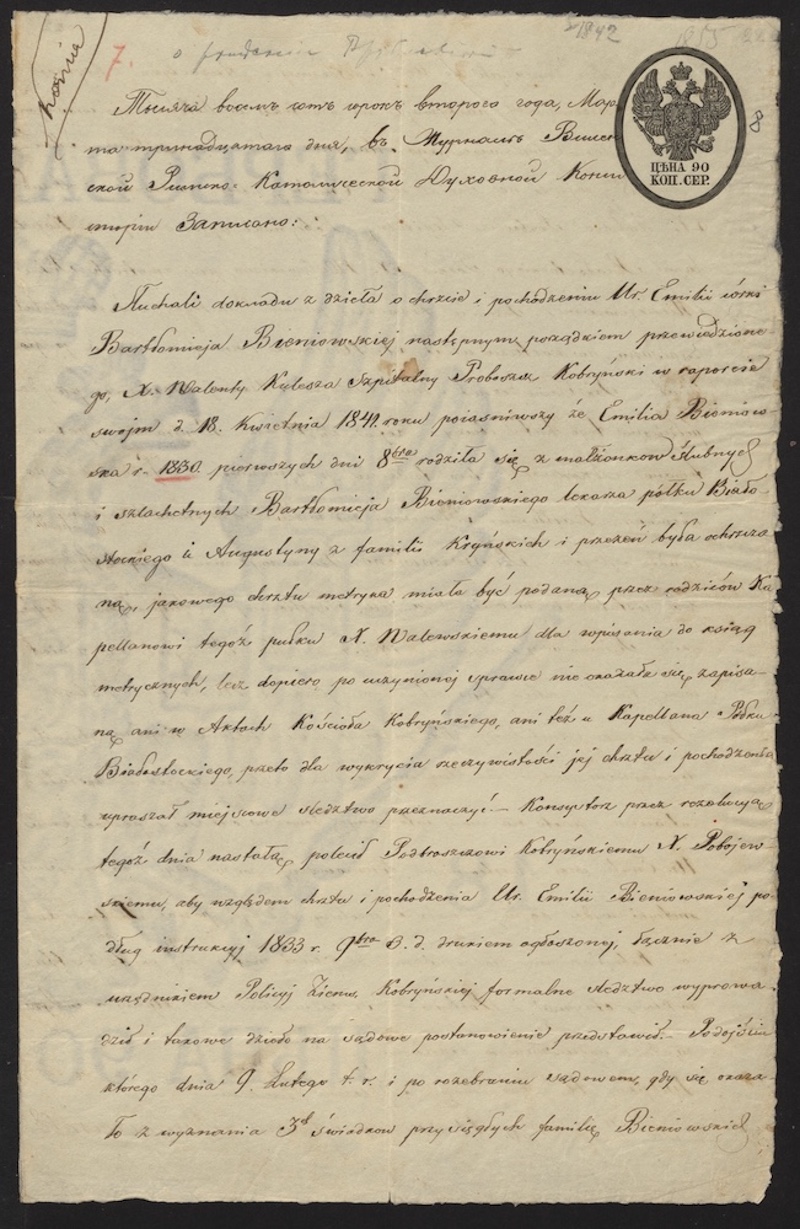 kopia
7.
1842
1855
8
ЦѢНА 90
КОП. СЕР.
Тысяча восемъ сотъ сорокъ втораго года, Мар
та тринадцатаго дня, въ Журналѣ Вилен
ской Римско-Католической Духовной Консис
торіи Записано:
Słuchali dokładu z dzieła o chrzcie i pochodzeniu Ur. Emilii córki
Bartłomieja Bieniowskiej następnym porządkiem przewiedzione-
go, X. Walenty Kulesza Szpitalny Proboszcz Kobryński w raporcie
swojm d. 18. Kwietnia 1841. roku pojasniwszy że Emilia Bieniow-
ska r. 1830. pierwszych dni 8bra rodziła się z małżonkow Ślubnych
i szlachetnych Bartłomieja Bieniowskiego lekarza półku Biało-
stockiego i Augustyny z familii Kryńskich i przezeń była ochrzczo
ną, jakowego chrztu metryka miała być podaną przez rodziców Ka
pellanowi tegoż pułku X. Walewskiemu dla wpisania do ksiąg
metrycznych, lecz dopiero po uczynionej sprawce nie okazała się zapisa-
ną ani w Aktach Kościoła Kobryńskiego, ani też u Kapellana Półku
Białostockiego, przeto dla wykrycia rzeczywistości jej chrztu i pochodzenia
upraszał miejscowe sledztwo przeznaczyć. – Konsystorz przez rezolucyą
tegoż dnia nastałą polecił Podbroszczowi Kobryńskiemu X. Pobojew-
skiemu, aby względem chrztu i pochodzenia Ur. Emilii Bieniowskiej po-
dług instrukcyj 1833 r. 9bra 3. d. drukiem ogłoszonej, łącznie z
urzędnikiem Policyj Ziems. Kobryńskiej formalne sledztwo wyprowa
dził i takowe dzieło na sądowe postanowienie przedstawił. – Podojściu
którego dnia 9. Lutego t. r. i po rozebraniu sądowem, gdy się okaza-
ło z wyznania 3ch świadkow przysięgłych familię Bieniowskich